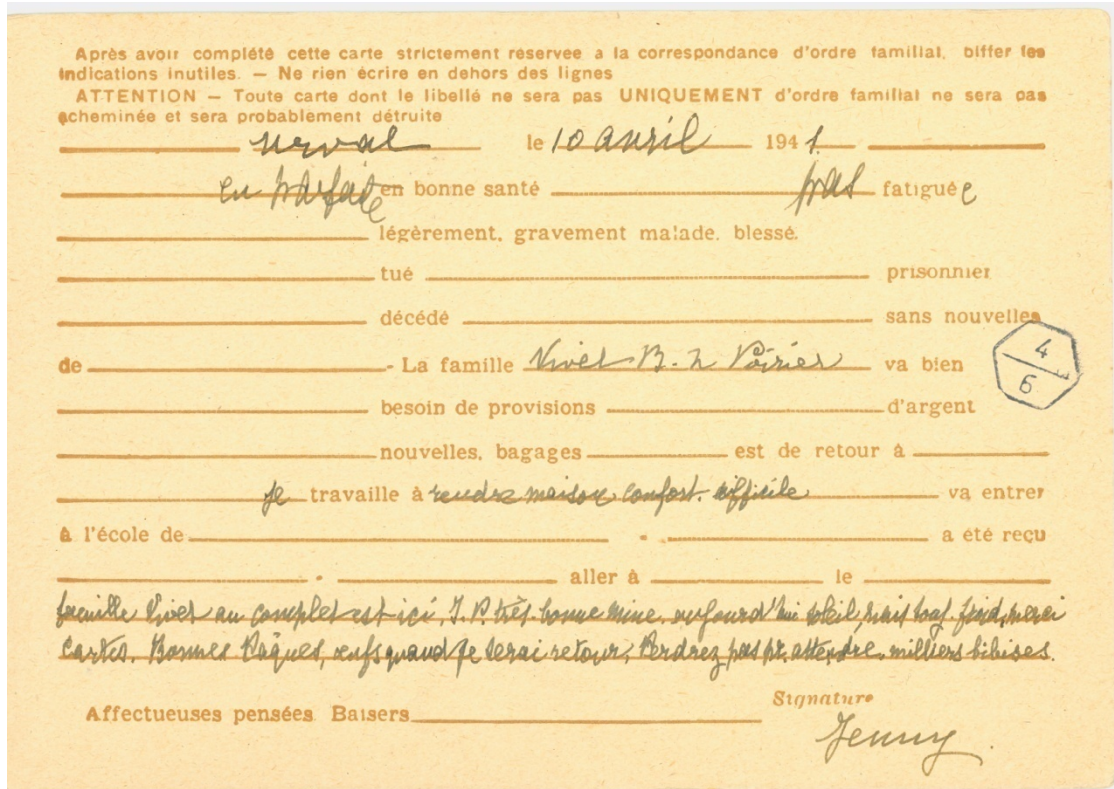 Après avoir complété cette carte strictement réservée a la correspondance d'ordre familial, biffer les
indications inutiles. — Ne rien écrire en dehors des lignes
ATTENTION — Toute carte dont le libellé ne sera pas UNIQUEMENT d'ordre familial ne sera pas
acheminée et sera probablement détruite
le 10 avril 1941.
en parfaite en bonne santé pas fatiguée
légèrement, gravement malade, blessé.
tué prisonnier
décédé sans nouvelles
de - La famille Vivet B. Poirier va bien
4
6
besoin de provisions d'argent
nouvelles, bagages est de retour à
je travaille à rendre maison confort. difficile va entrer
à l'école de - a été reçu
- aller à le
famille Vivet au complet est ici, J.P. très bonne mine, aujourd'hui soleil, mais touj. froid, merci
cartes. Bonnes Pâques, oeufs quand je serai retour, Perdrez pas pr. attendre, milliers bibises.
Affectueuses pensées Baisers
Signature
Jenny.